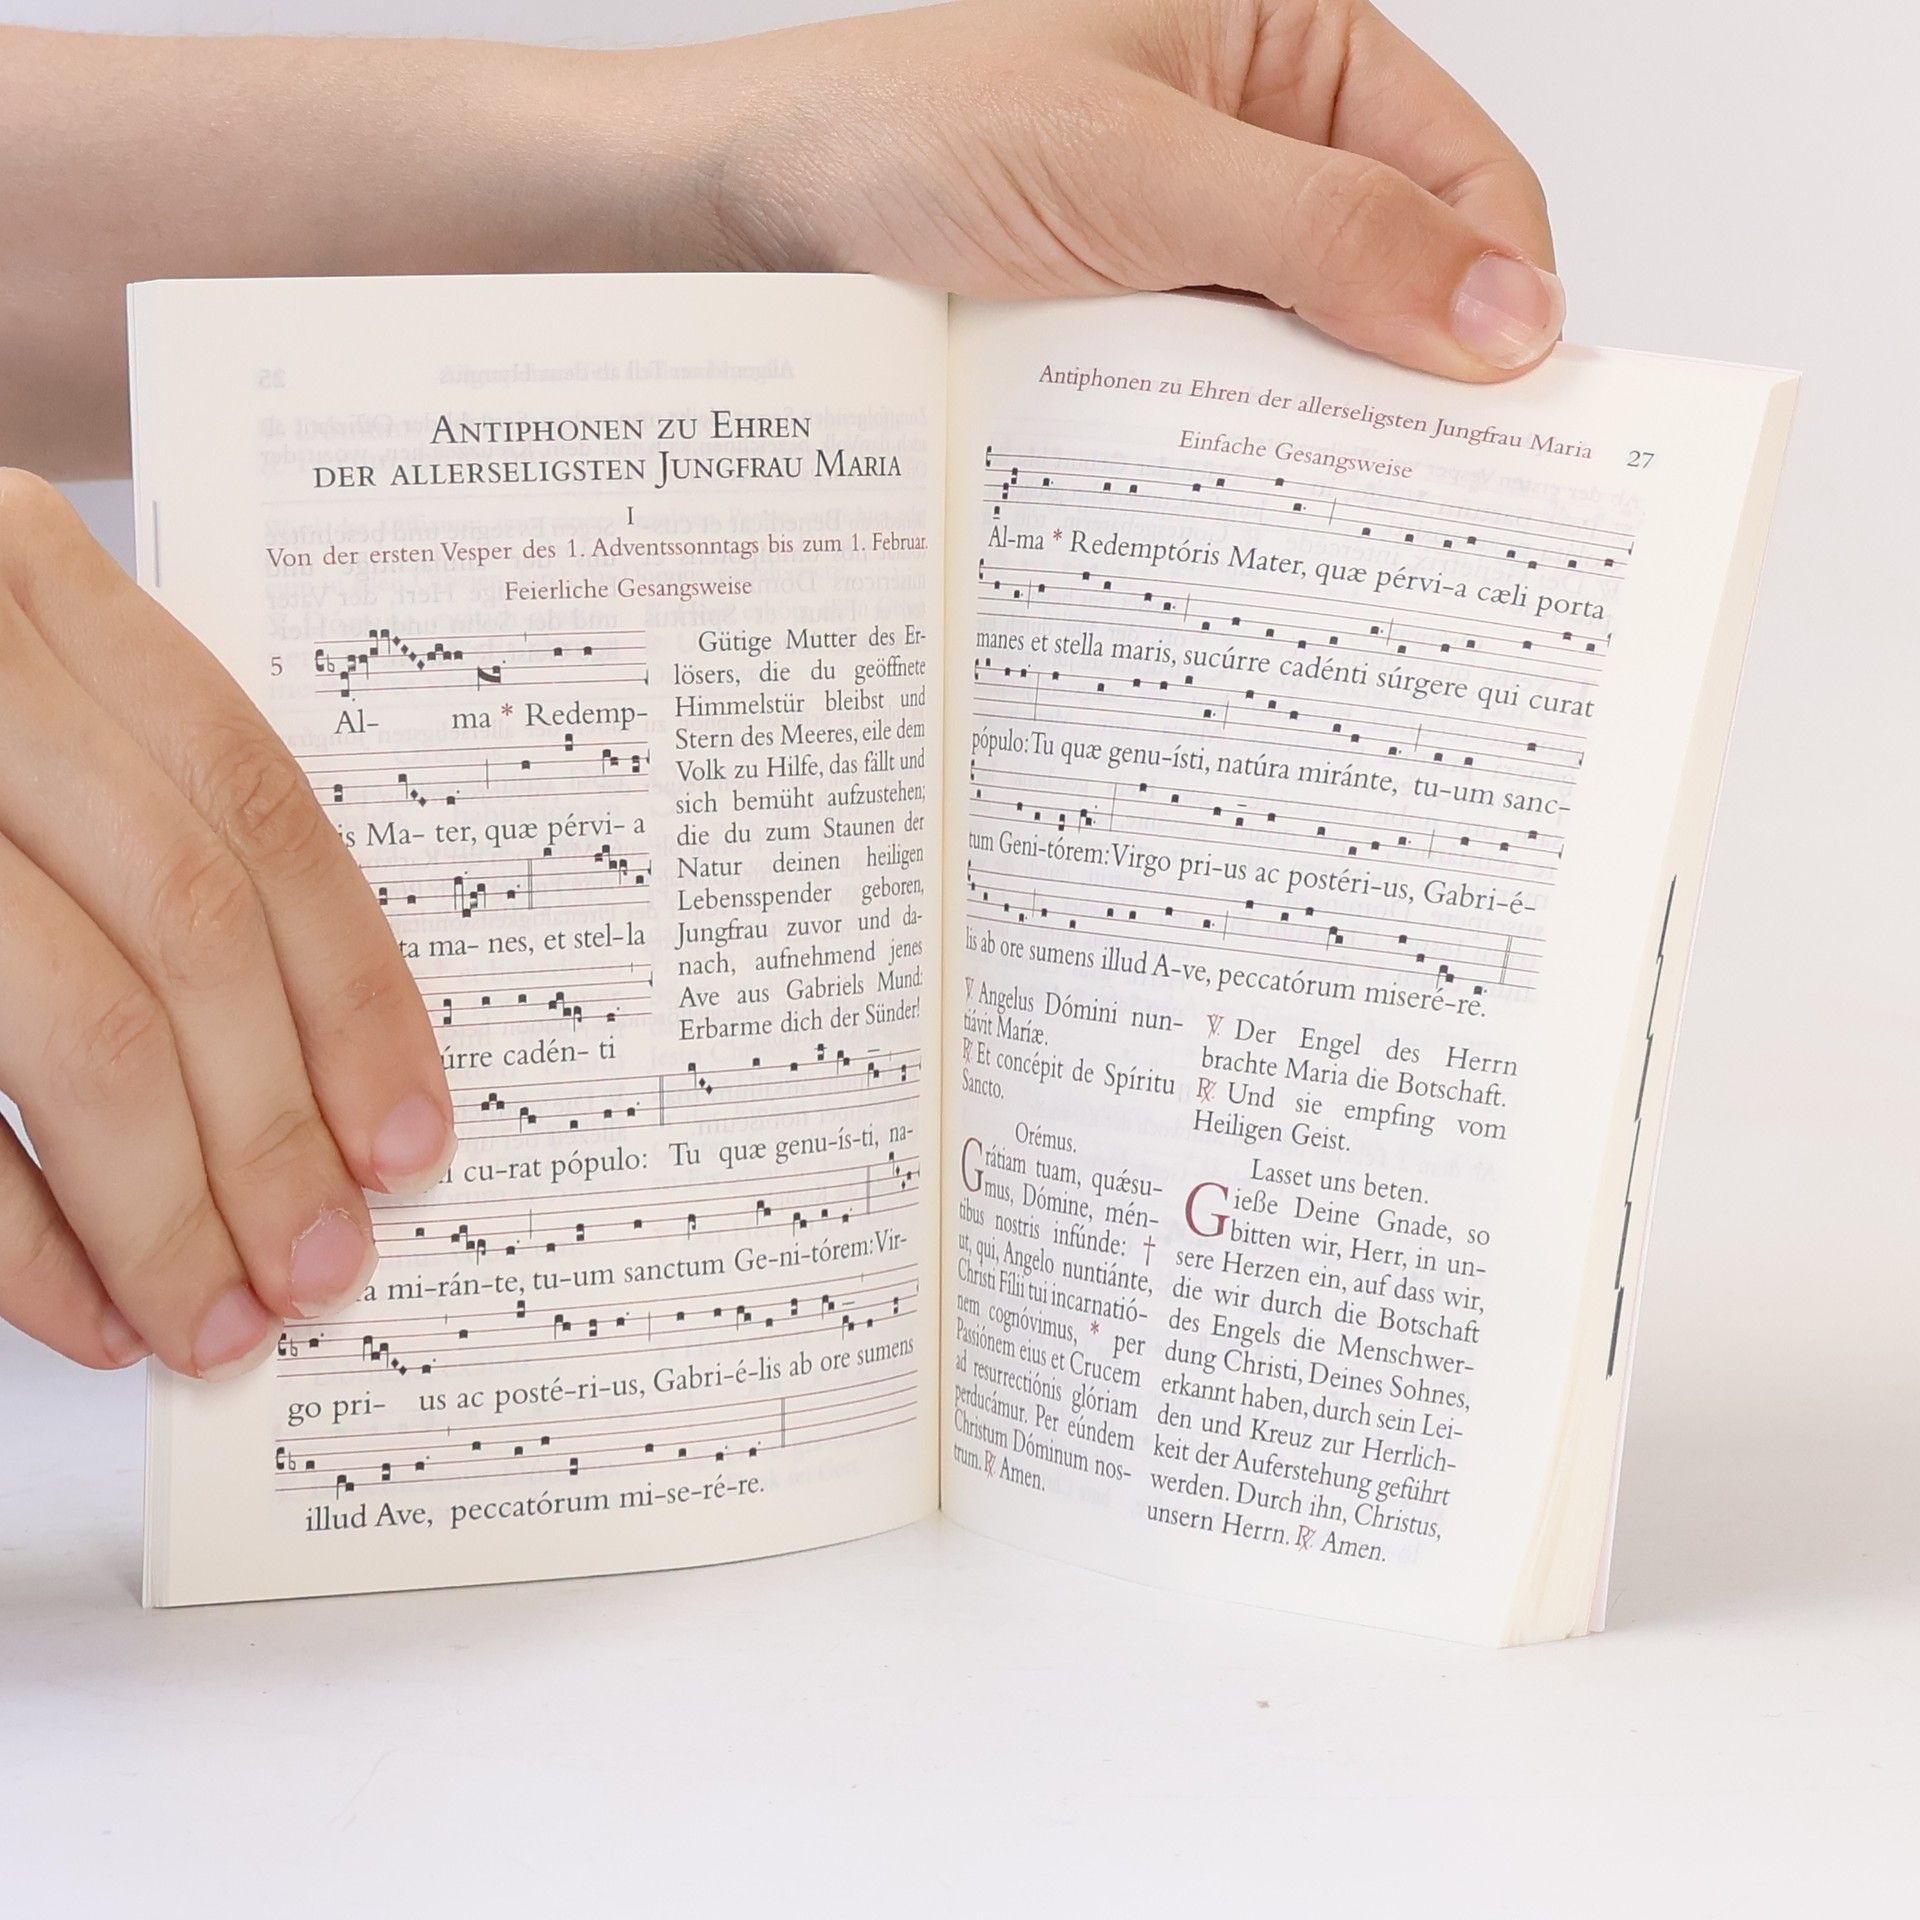 ANTIPHONEN ZU EHREN
DER ALLERSELIGSTEN JUNGFRAU MARIA
I
Von der ersten Vesper des 1. Adventssonntags bis zum 1. Februar.
Feierliche Gesangsweise
5
Al- ma * Redemp-
is Ma- ter, quæ pérvi- a
ta ma- nes, et stel-la
úrre cadén- ti
Gütige Mutter des Er-
lösers, die du geöffnete
Himmelstür bleibst und
Stern des Meeres, eile dem
Volk zu Hilfe, das fällt und
sich bemüht aufzustehen;
die du zum Staunen der
Natur deinen heiligen
Lebensspender geboren,
Jungfrau zuvor und da-
nach, aufnehmend jenes
Ave aus Gabriels Mund:
Erbarme dich der Sünder!
cu-rat pópulo: Tu quæ genu-ís-ti, na-
a mi-rán-te, tu-um sanctum Ge-ni-tórem: Vir-
go pri- us ac posté-ri-us, Gabri-é-lis ab ore sumens
illud Ave, peccatórum mi-se-ré-re.
Antiphonen zu Ehren der allerseligsten Jungfrau Maria 27
Einfache Gesangsweise
Al-ma * Redemptóris Mater, quæ pérvi-a cæli porta
manes et stella maris, sucúrre cadénti súrgere qui curat
pópulo: Tu quæ genu-ísti, natúra miránte, tu-um sanc-
tum Geni-tórem: Virgo pri-us ac postéri-us, Gabri-é-
lis ab ore sumens illud A-ve, peccatórum miseré-re.
℣ Angelus Dómini nun-
tiávit Maríæ.
℟ Et concépit de Spíritu
Sancto.
Orémus.
Grátiam tuam, quǽsu-
mus, Dómine, mén-
tibus nostris infúnde: †
ut, qui, Angelo nuntiánte,
Christi Fílii tui incarnatió-
nem cognóvimus, * per
Passiónem eius et Crucem
ad resurrectiónis glóriam
perducámur. Per eúndem
Christum Dóminum nos-
trum. ℟ Amen.
℣ Der Engel des Herrn
brachte Maria die Botschaft.
℟ Und sie empfing vom
Heiligen Geist.
Lasset uns beten.
Gieße Deine Gnade, so
bitten wir, Herr, in un-
sere Herzen ein, auf dass wir,
die wir durch die Botschaft
des Engels die Menschwer-
dung Christi, Deines Sohnes,
erkannt haben, durch sein Lei-
den und Kreuz zur Herrlich-
keit der Auferstehung geführt
werden. Durch ihn, Christus,
unsern Herrn. ℟ Amen.